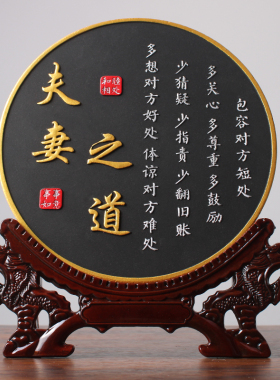 包容对方短处
多关心 多尊重 多鼓励
少猜疑 少指责 少翻旧账
多想对方好处 体谅对方难处
夫妻
之道
和睦相处
事事如意